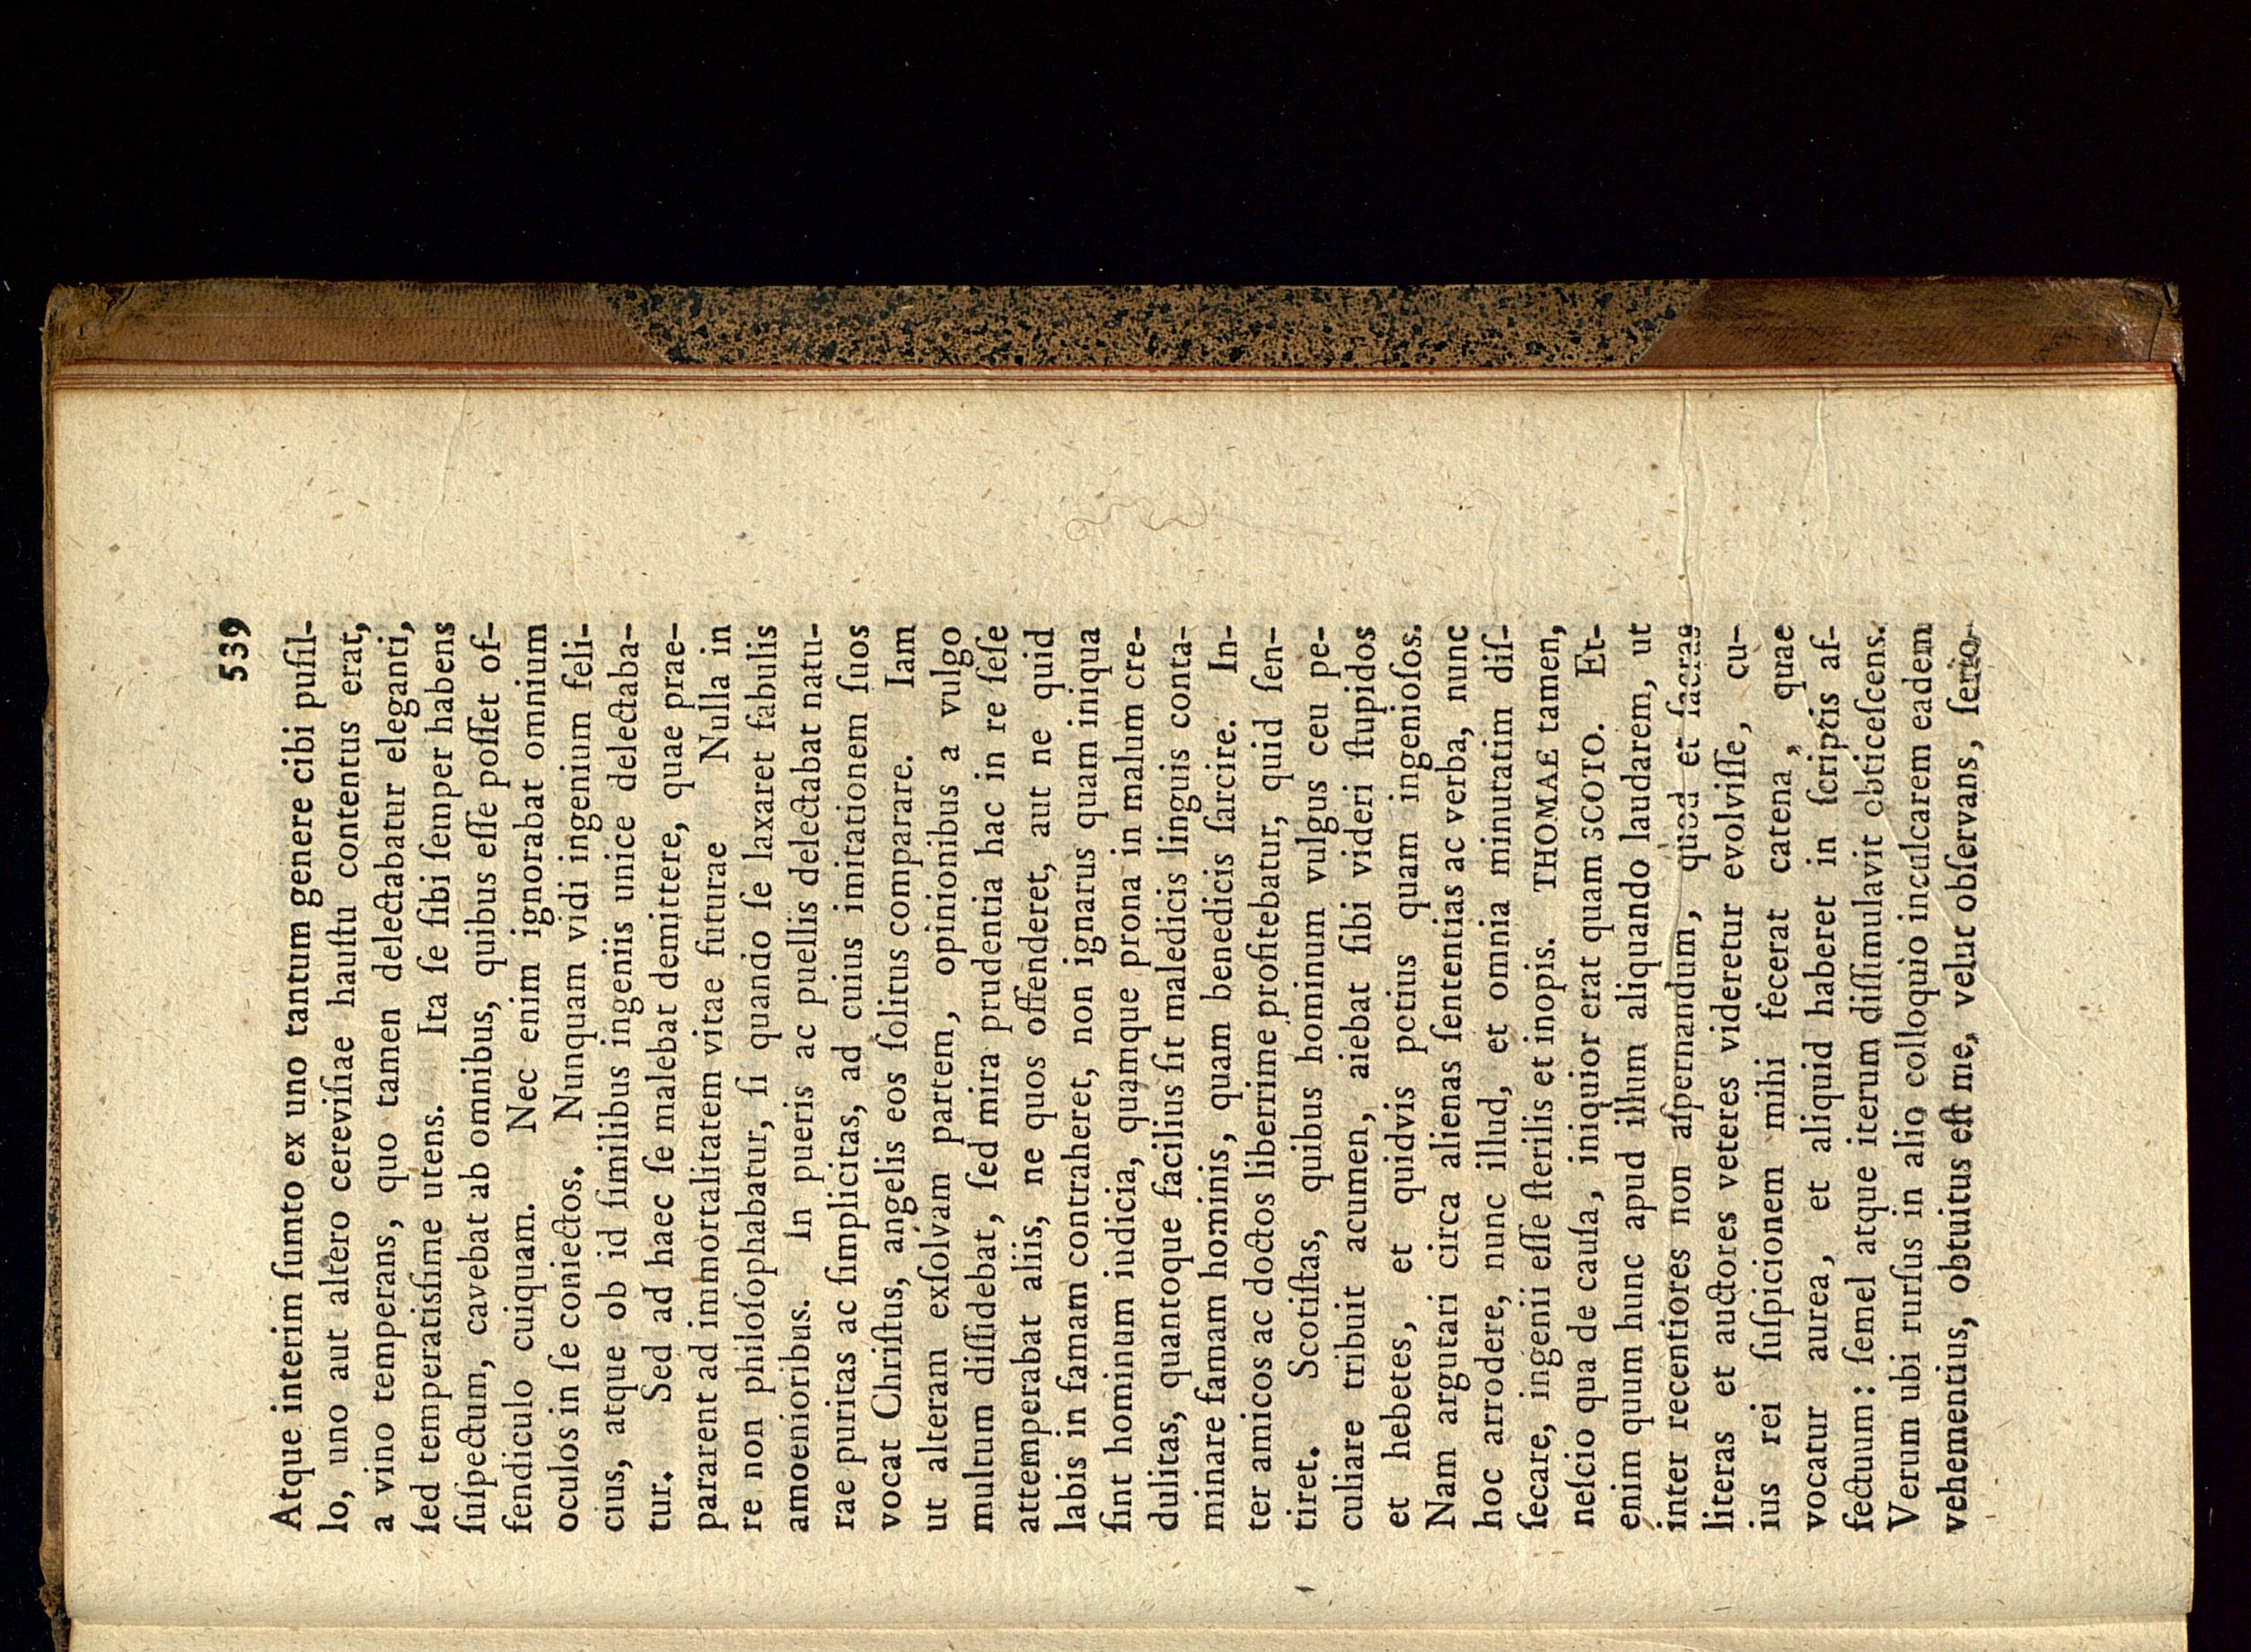 539
Atque interim ſunto ex uno tantum genere cibi puſil-
lo, uno aut altero cereviſiae hauſtu contentus erat,
a vino temperans, quo tamen delectabatur eleganti,
ſed temperatisſime utens. Ita ſe ſibi ſemper habens
ſuſpectum, cavebat ab omnibus, quibus eſſe poſſet of-
fendiculo cuiquam. Nec enim ignorabat omnium
oculos in ſe coniectos. Nunquam vidi ingenium feli-
cius, atque ob id ſimilibus ingeniis unice delectaba-
tur. Sed ad haec ſe malebat demittere, quae prae-
pararent ad immortalitatem vitae futurae Nulla in
re non philoſophabatur, ſi quando ſe laxaret fabulis
amoenioribus. In pueris ac puellis delectabat natu-
rae puritas ac ſimplicitas, ad cuius imitationem ſuos
vocat Chriſtus, angelis eos ſolitus comparare. Iam
ut alteram exſolvam partem, opinionibus a vulgo
multum diſſidebat, ſed mira prudentia hac in re ſeſe
attemperabat aliis, ne quos offenderet, aut ne quid
labis in famam contraheret, non ignarus quam iniqua
ſint hominum iudicia, quamque prona in malum cre-
dulitas, quantoque facilius ſit maledicis linguis conta-
minare famam hominis, quam benedicis ſarcire. In-
ter amicos ac doctos liberrime profitebatur, quid ſen-
tiret. Scotiſtas, quibus hominum vulgus ceu pe-
culiare tribuit acumen, aiebat ſibi videri ſtupidos
et hebetes, et quidvis potius quam ingenioſos.
Nam argutari circa alienas ſententias ac verba, nunc
hoc arrodere, nunc illud, et omnia minutatim diſ-
ſecare, ingenii eſſe ſterilis et inopis. THOMAE tamen,
neſcio qua de cauſa, iniquior erat quam SCOTO. Et-
enim quum hunc apud illum aliquando laudarem, ut
inter recentiores non aſpernandum, quod et ſacras
literas et auctores veteres videretur evolviſſe, cu-
ius rei ſuſpicionem mihi fecerat catena, quae
vocatur aurea, et aliquid haberet in ſcriptis af-
fectuum: ſemel atque iterum diſſimulavit obticeſcens.
Verum ubi rurſus in alio colloquio inculcarem eadem
vehementius, obtuitus eſt me, velut obſervans, ſerio-